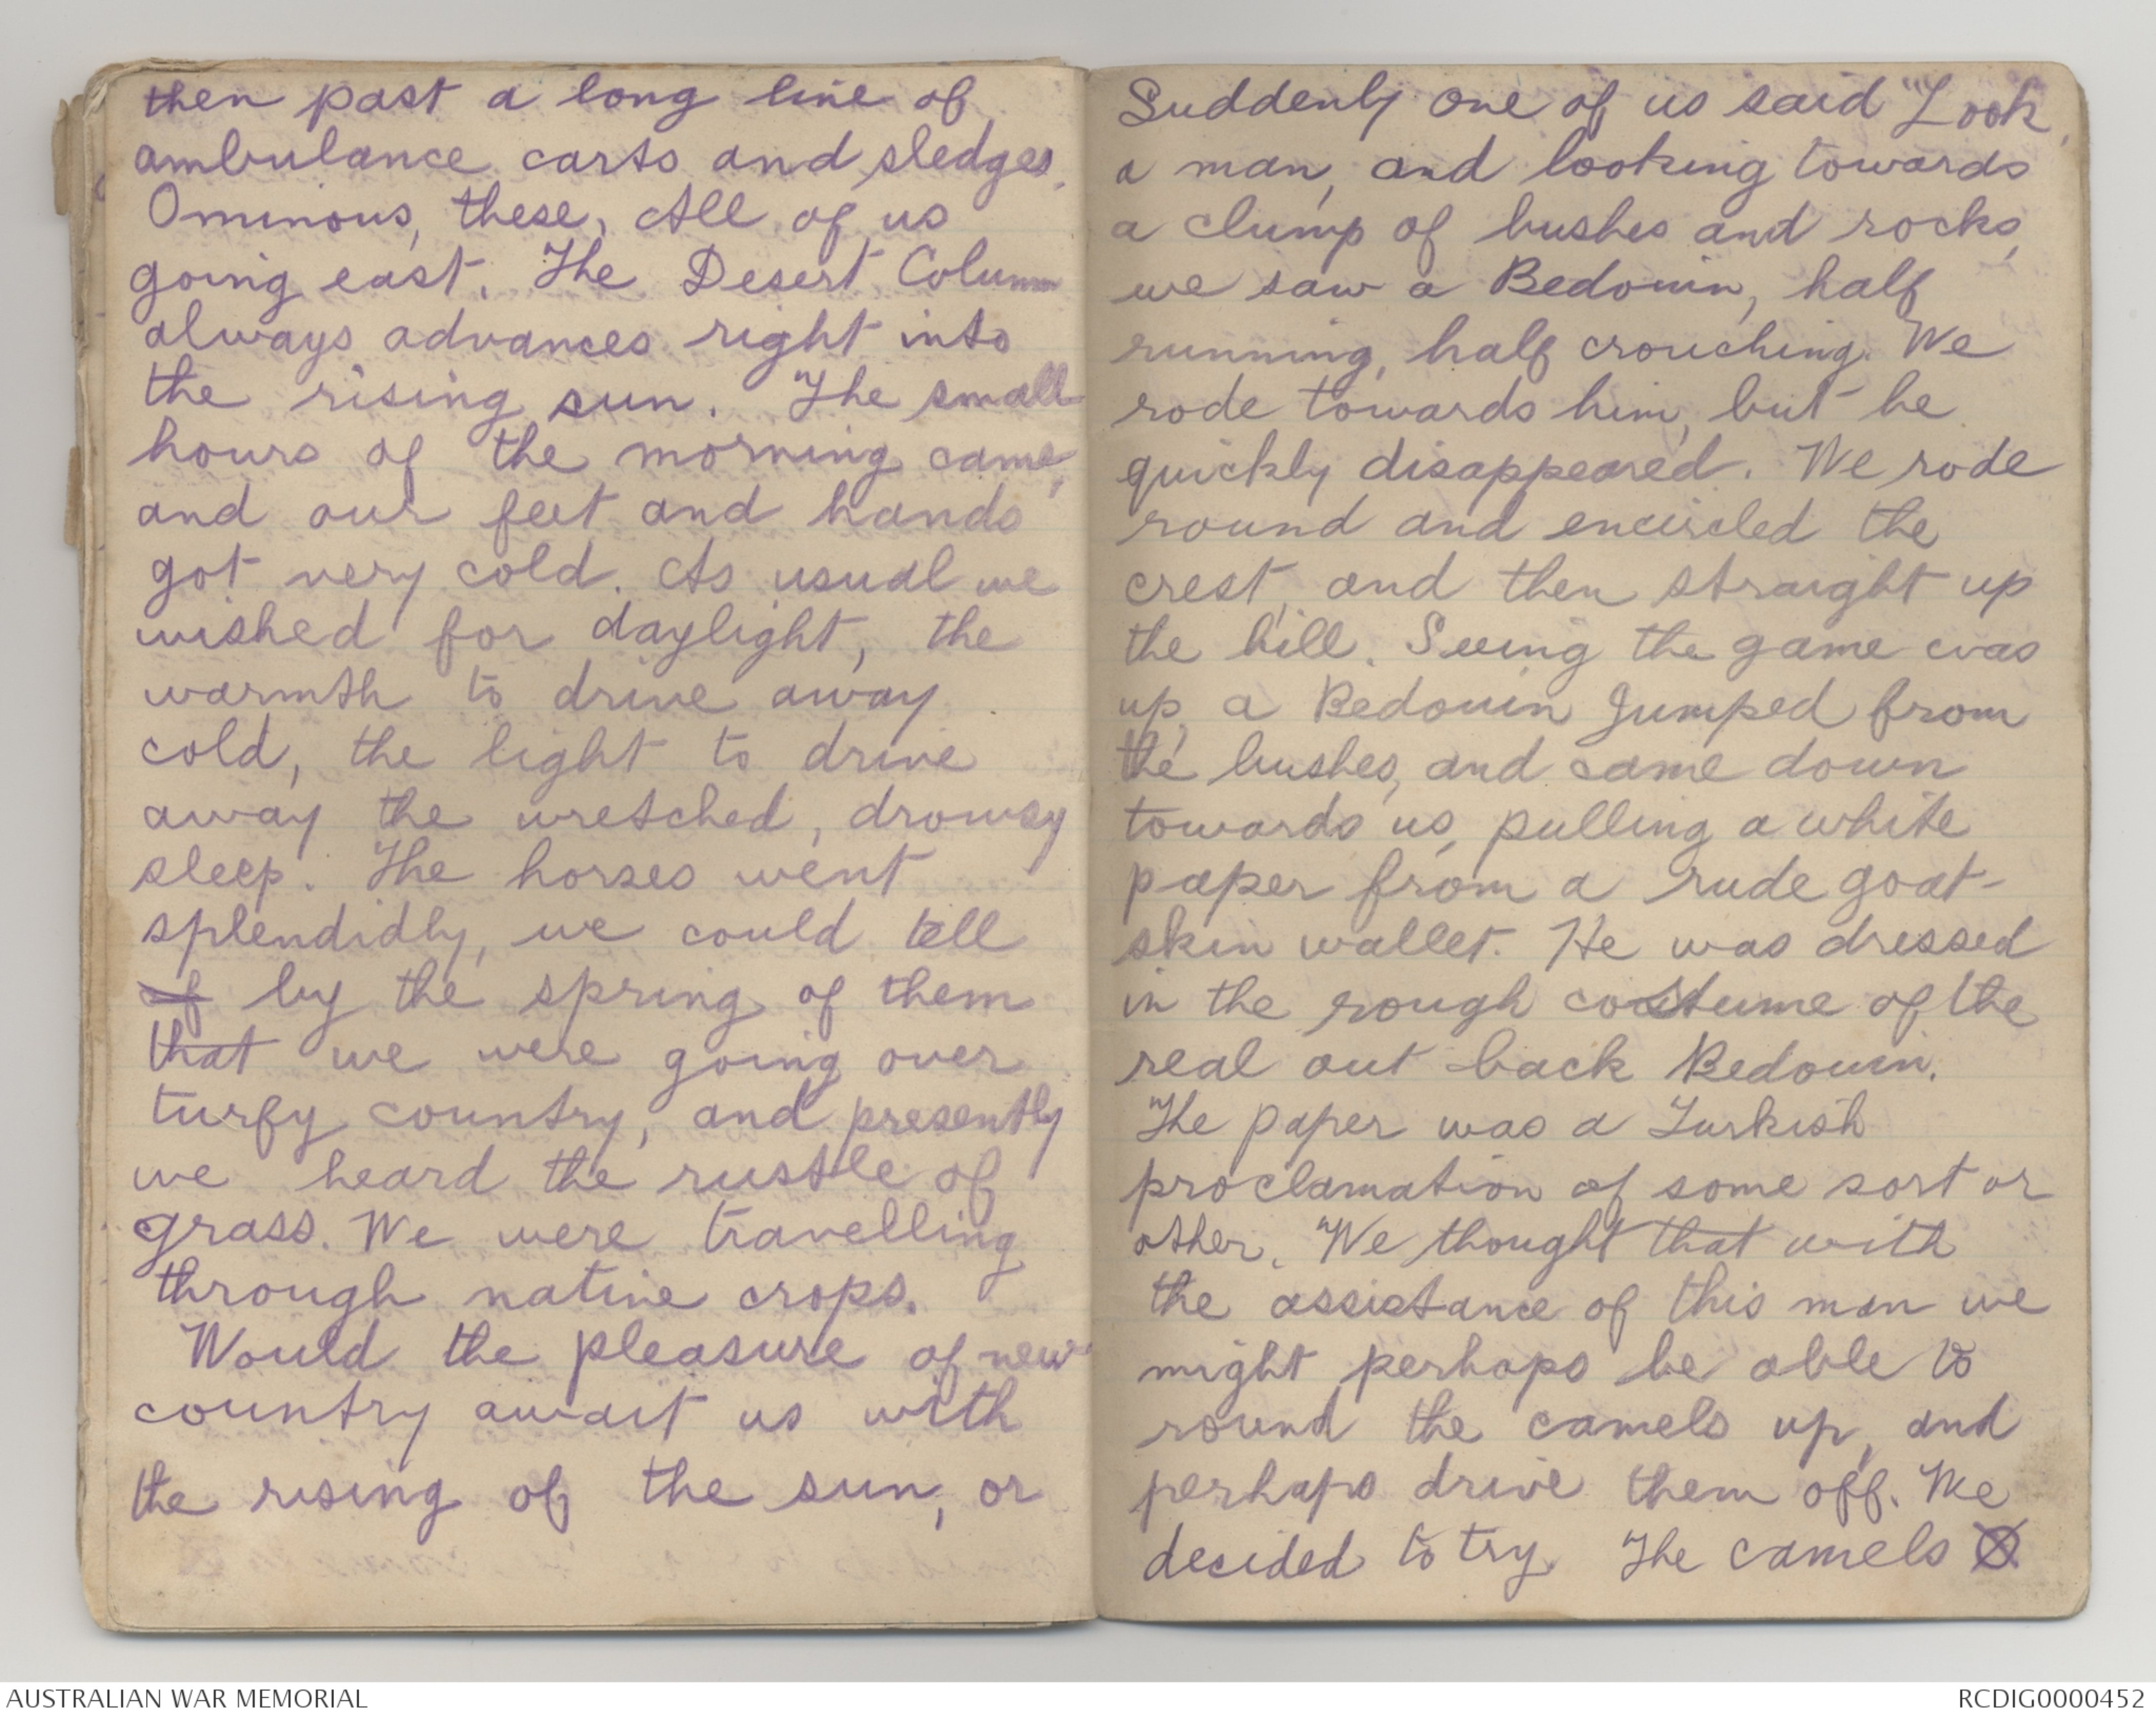 then past a long line of
ambulance carts and sledges.
Ominous, these. All of us
going east. The Desert Column
always advances right into
the rising sun. The small
hours of the morning came,
and our feet and hands
got very cold. As usual we
wished for daylight, the
warmth to drive away
cold, the light to drive
away the wretched, drowsy
sleep. The horses went
splendidly, we could tell
of by the spring of them
that we were going over
turfy country, and presently
we heard the rustle of
grass. We were travelling
through native crops.
Would the pleasure of new
country await us with
the rising of the sun, or
Suddenly one of us said "Look,
a man, and looking towards
a clump of bushes and rocks,
we saw a Bedouin, half
running, half crouching. We
rode towards him, but he
quickly disappeared. We rode
round and encircled the
crest, and then straight up
the hill. Seeing the game was
up, a Bedouin jumped from
the bushes, and came down
towards us, pulling a white
paper from a rude goat-
skin wallet. He was dressed
in the rough costume of the
real out back Bedouin.
The paper was a Turkish
proclamation of some sort or
other. We thought that with
the assistance of this man we
might perhaps be able to
round the camels up, and
perhaps drive them off. We
decided to try. The camels
AUSTRALIAN WAR MEMORIAL
RCDIG0000452